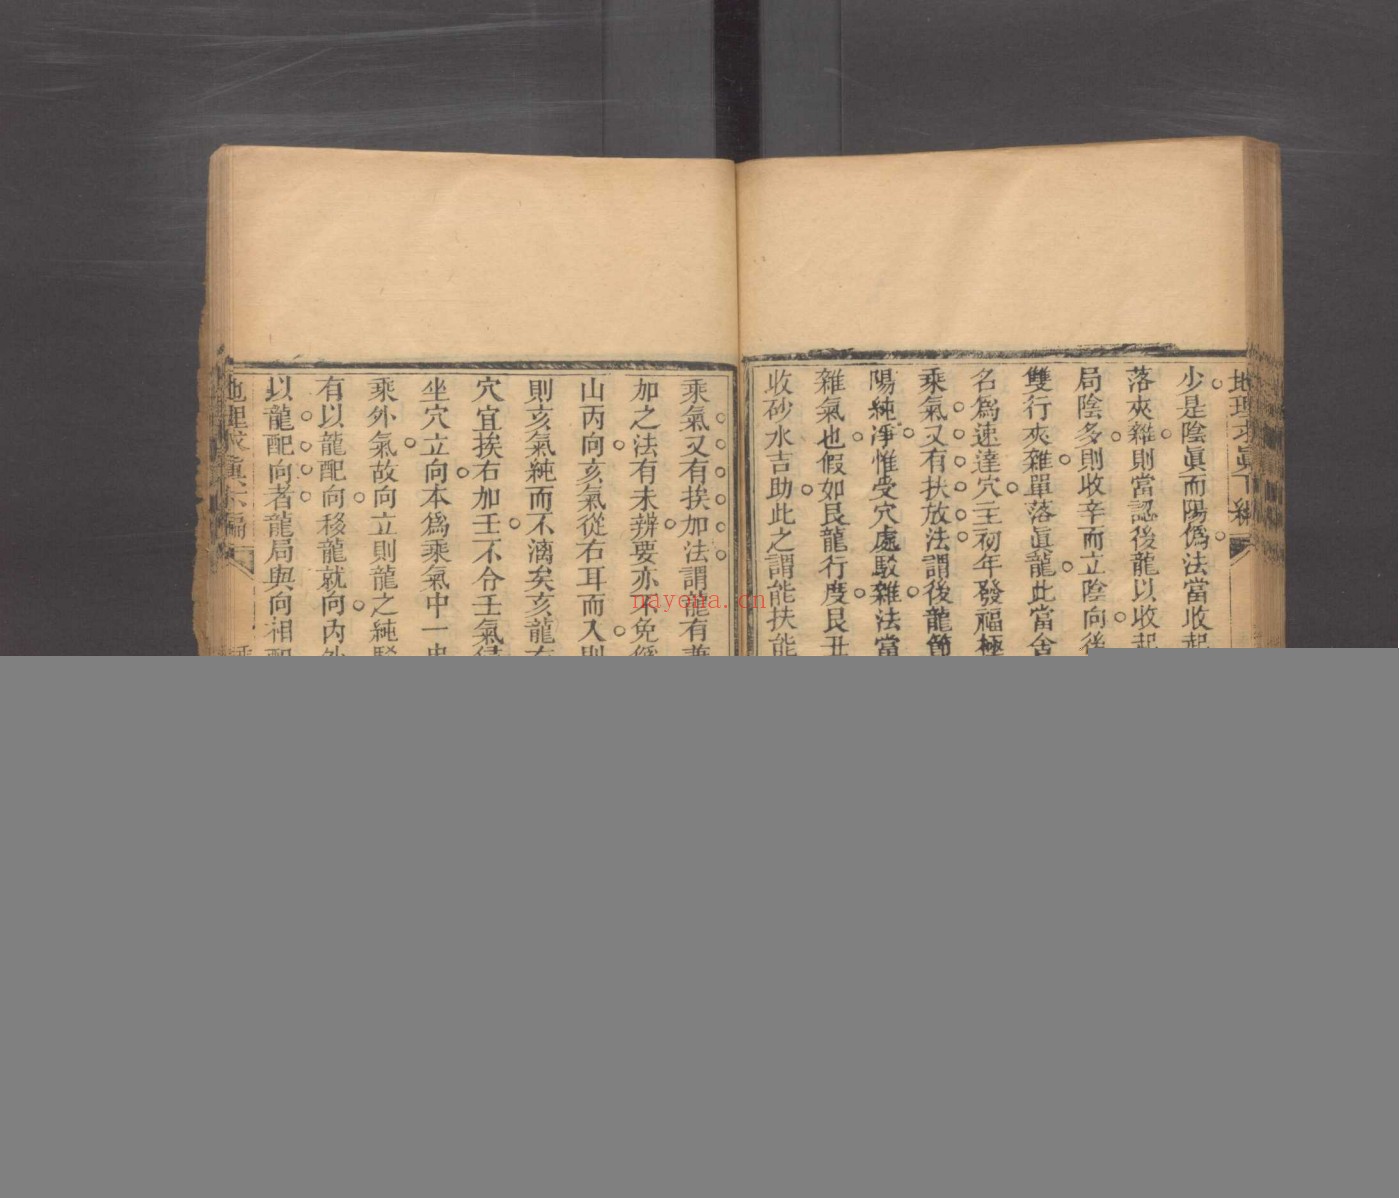 少是陰眞而陽僞法當收起
落夾雜則當認後龍以收起
局陰多則收辛而立陰向後
雙行夾雜單落眞龍此當舍
名爲速達穴主初年發福極
乘氣又有扶放法謂後龍節
陽純淨惟受穴處駁雜法當
雜氣也假如艮龍行度艮丑
收砂水吉助此之謂能扶能
乘氣又有挨加法謂龍有兼
加之法有未辨要亦不免
山丙向亥氣從右耳而入則
則亥氣純而不漓矣亥龍右
穴宜挨右加壬不令壬氣侵
坐穴立向本爲乘氣中一
乘外氣故向立則龍之純駁
有以龍配向移龍就向內外
以龍配向者龍局與向相配
nayona.cn